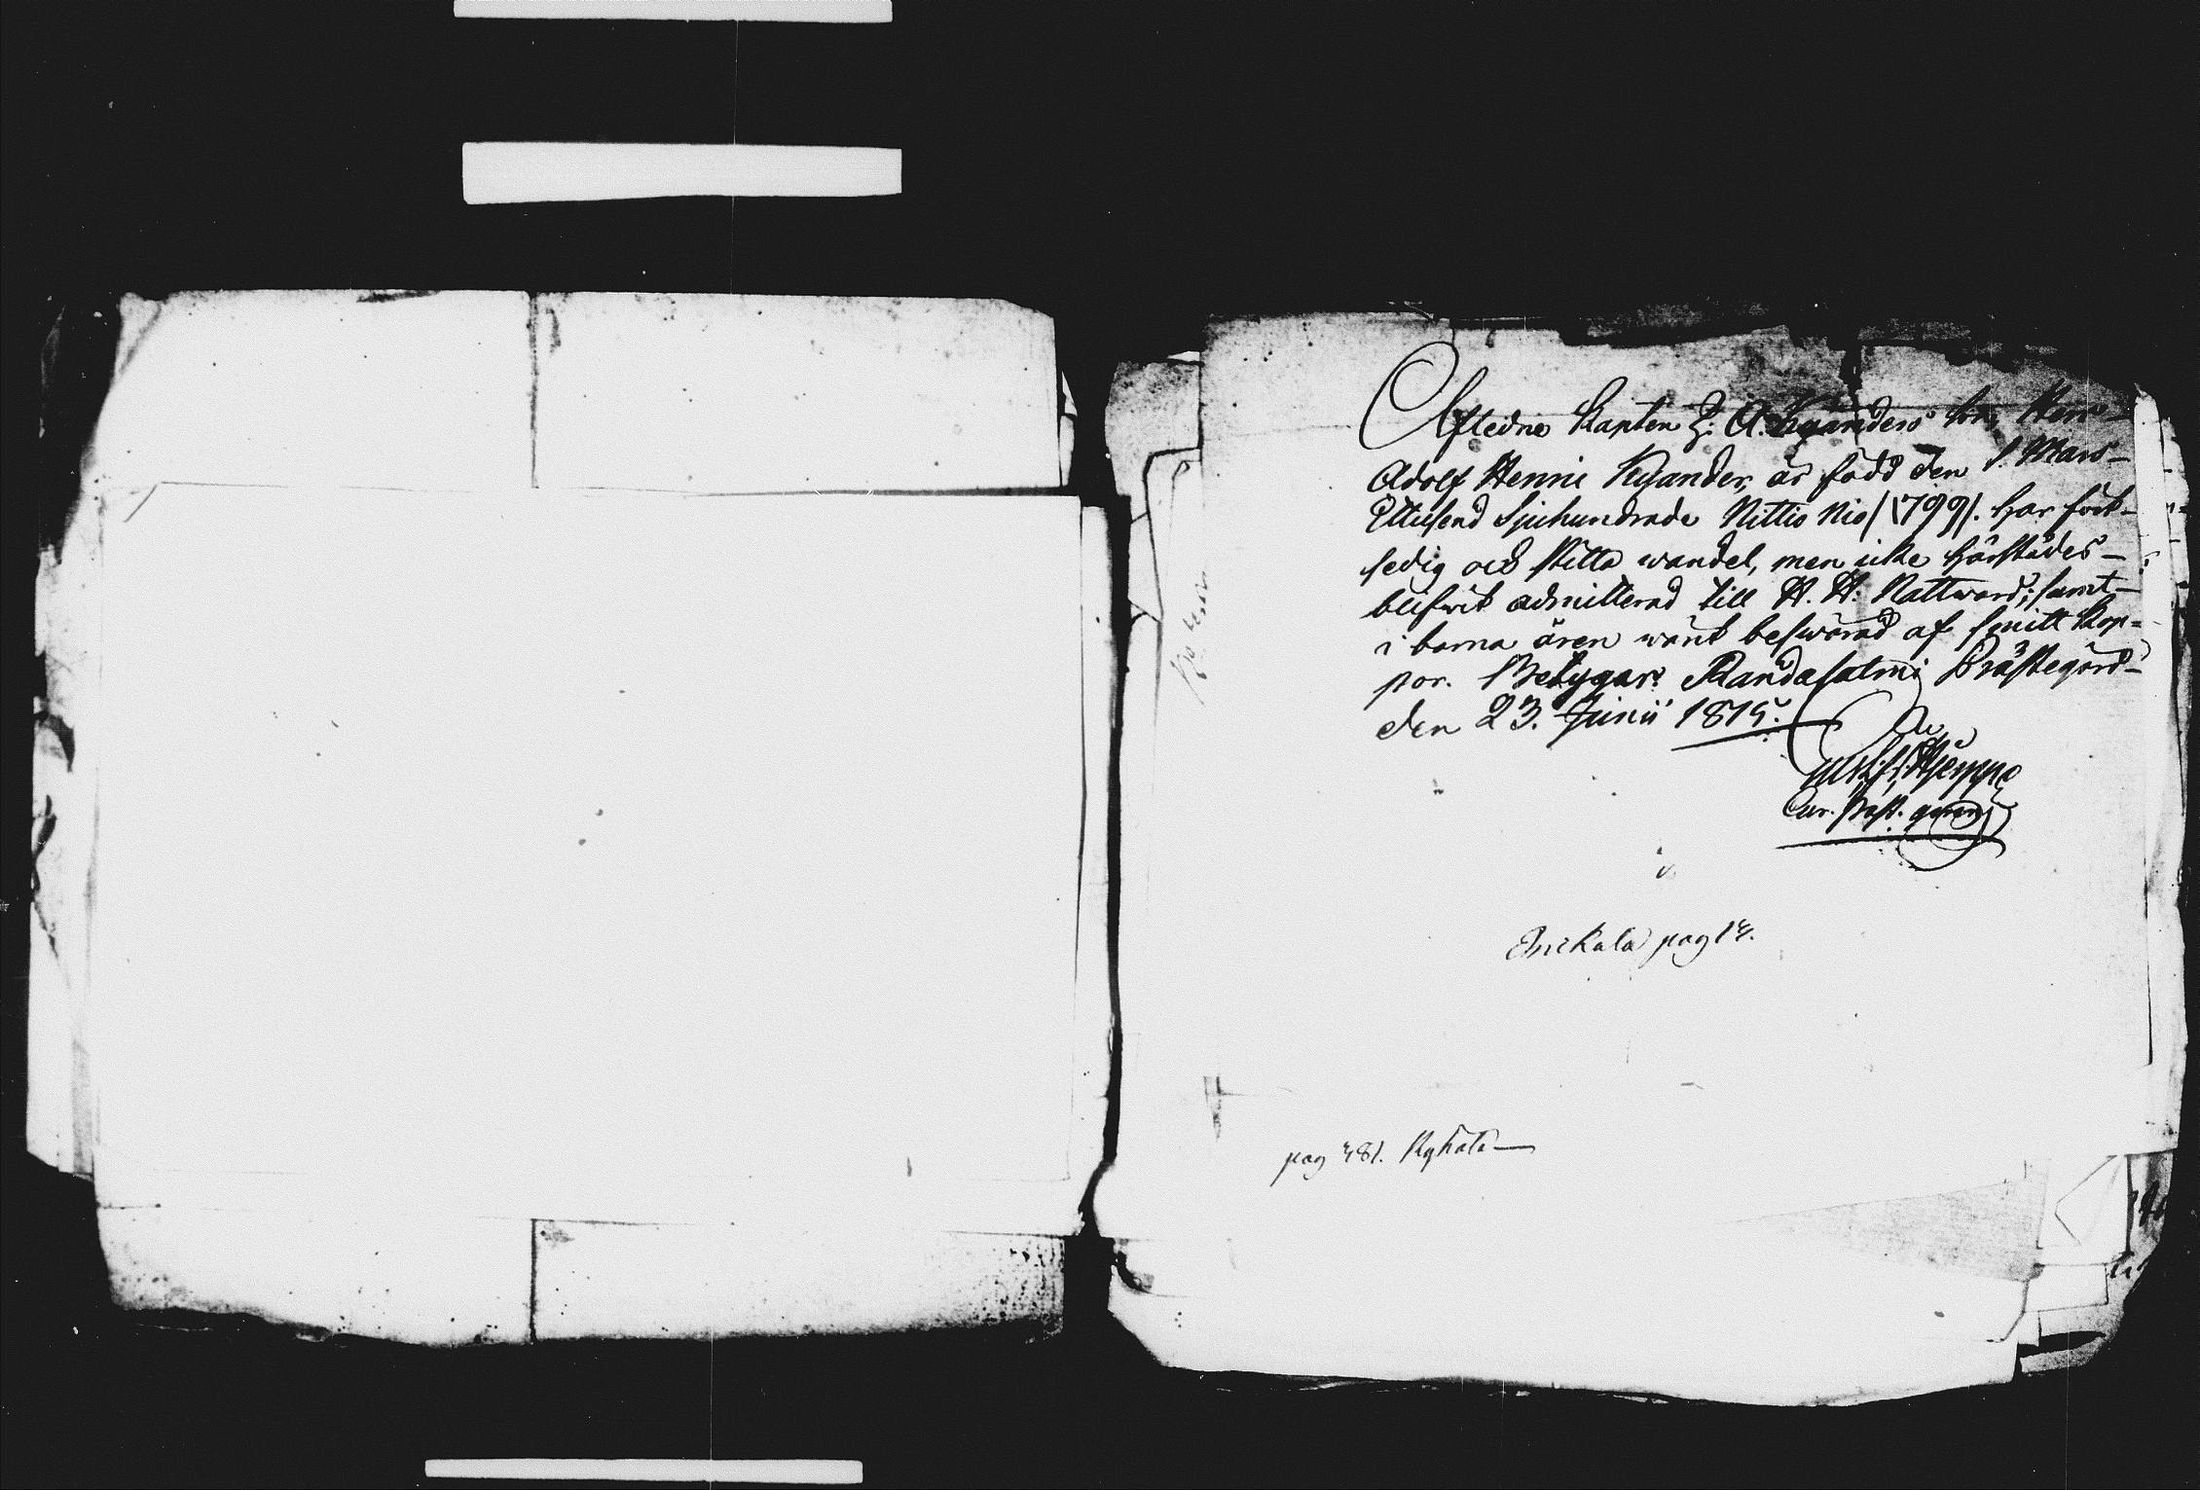 Afledne Kapten Z: A. Kyanders son, Herr
Adolf Henric Kyander, är född den 1. Mars
Ettusend Sjuhundrade Nittio Nio /1799/. har fört
sedig och stilla wandel, men icke härstädes
blifwit admitterad till H. H. Nattward; samt
i barna åren warit beswärad af smitt kop-
por. Betygar. Randasalmi Prästegård
den 23. Junii 1815.
Poppius
Enekala pag 18.
pag 481. Kykala